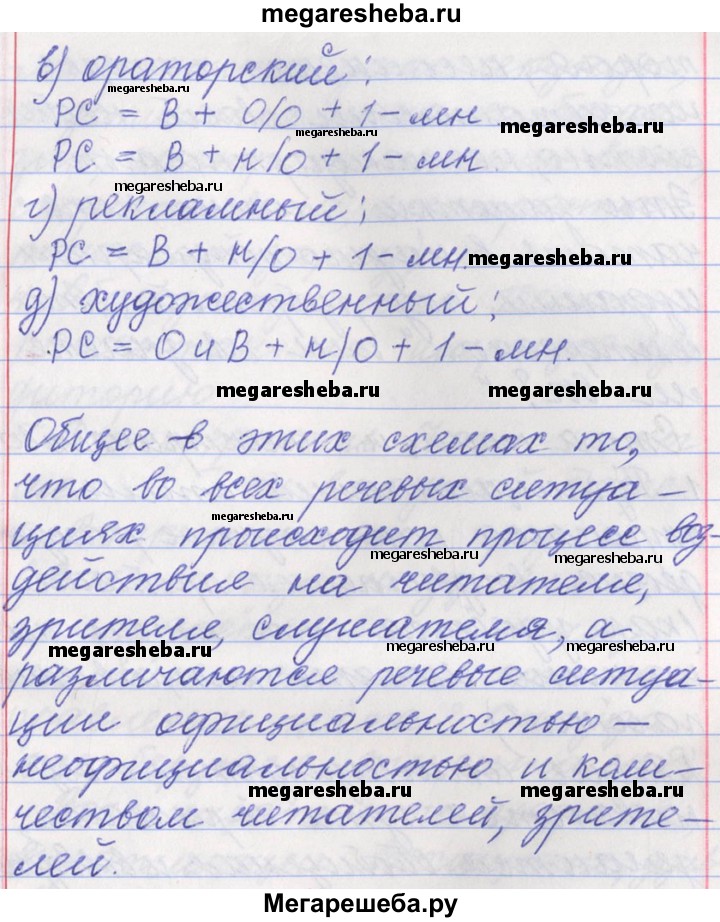 megaresheba.ru
в) ораторский:
megaresheba.ru
РС = В + О/О + 1 - мн.
megaresheba.ru
megaresheba.ru
РС = В + н/О + 1 - мн.
megaresheba.ru
г) рекламный;
РС = В + н/О + 1 - мн.
megaresheba.ru
д) художественный;
РС = О и В + н/О + 1 - мн.
megaresheba.ru
megaresheba.ru
Общее в этих схемах то,
что во всех речевых ситуа-
megaresheba.ru
циях происходит процесс воз-
megaresheba.ru
megaresheba.ru
действия на читателя,
зрителя, слушателя, а
megaresheba.ru
megaresheba.ru
megaresheba.ru
различаются речевые ситуа-
ции официальностью —
неофициальностью и коли-
megaresheba.ru
megaresheba.ru
чеством читателей, зрите-
лей.
Мегарешеба.ру